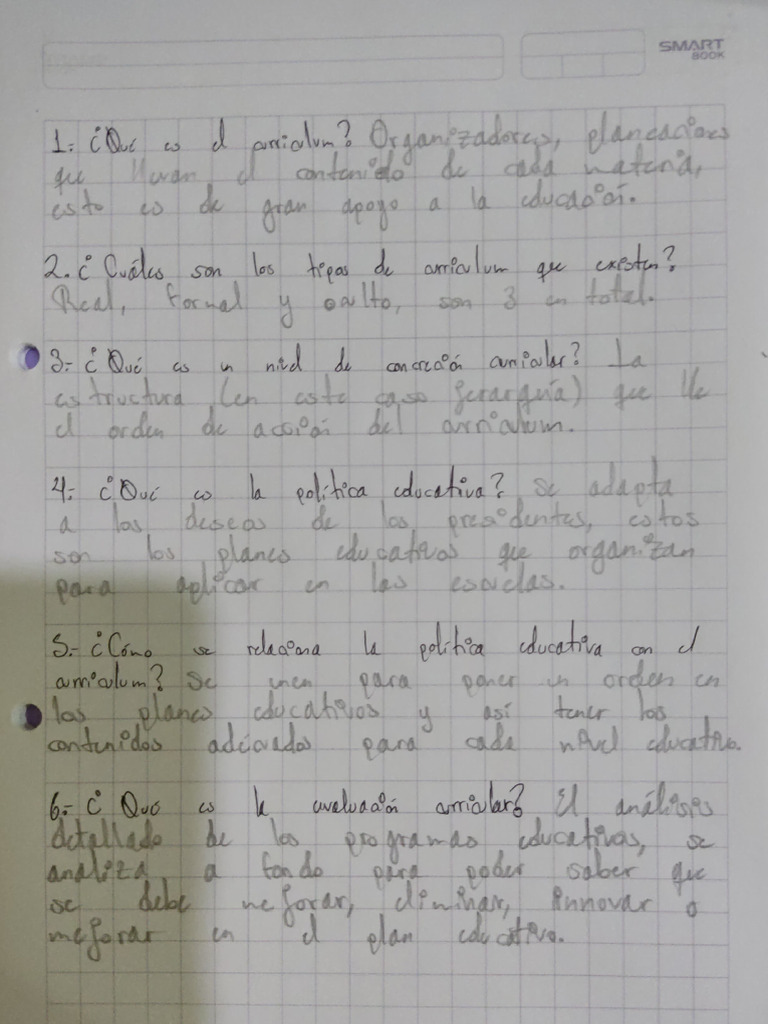 SMART
BOOK
1.- ¿Qué es el curriculum? Organizadores, planeaciones
que llevan el contenido de cada materia,
esto es de gran apoyo a la educación.
2. ¿Cuáles son los tipos de curriculum que existen?
Real, formal y oculto, son 3 en total.
3.- ¿Qué es un nivel de concreción curricular? La
estructura (en este caso jerarquía) que lle
el orden de acción del curriculum.
4.- ¿Qué es la política educativa? Se adapta
a los deseos de los presidentes, estos
son los planes educativos que organizan
para aplicar en las escuelas.
5.- ¿Cómo se relaciona la política educativa con el
curriculum? Se unen para poner un orden en
los planes educativos y así tener los
contenidos adecuados para cada nivel educativo.
6.- ¿Qué es la evaluación curricular? El análisis
detallado de los programas educativos, se
analiza a fondo para poder saber que
se debe mejorar, eliminar, innovar o
mejorar en el plan educativo.